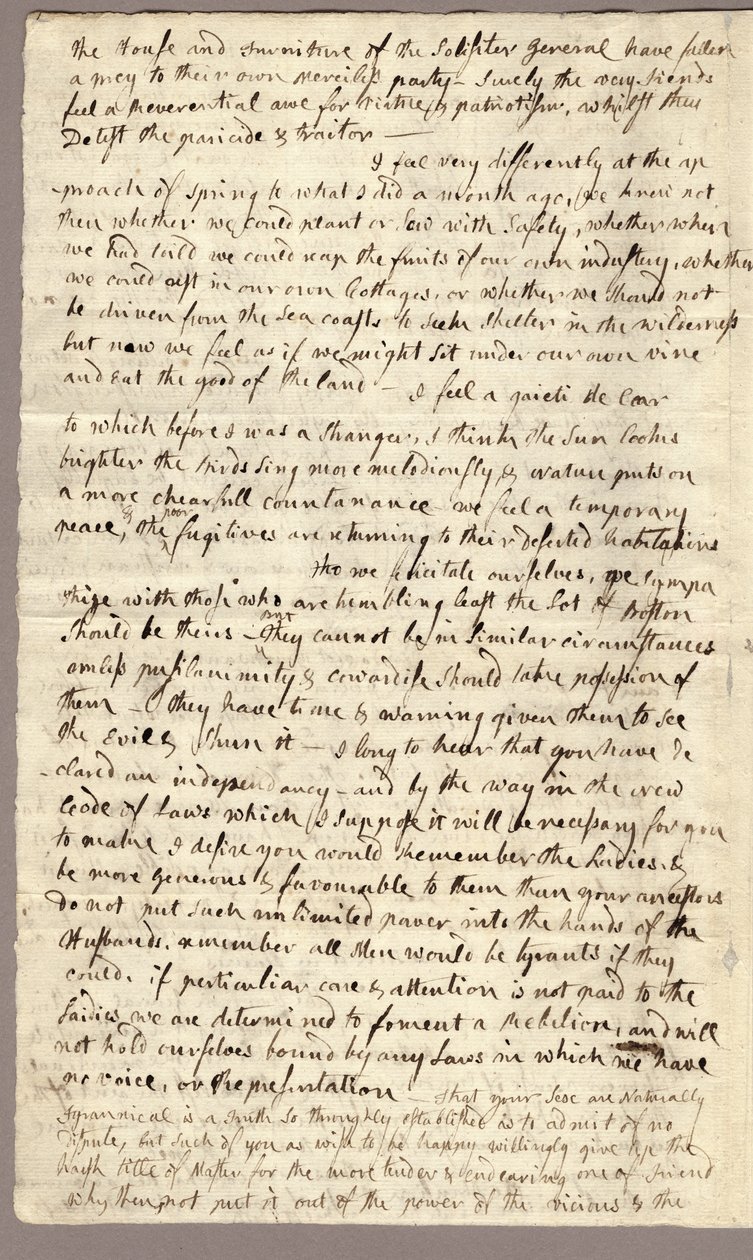 the House and furniture of the Solisiter General have fallen
a prey to their own merciless party — Surely the very Fiends
feel a Reverential awe for Virtue & patriotism, whilst they
Detest the paricide & traitor —
I feel very differently at the ap
-proach of spring to what I did a month ago, we knew not
then whether we could plant or sow with safety, whether when
we had toild we could reap the fruits of our own industery, whether
we could rest in our own Cottages, or whether we should not
be driven from the sea coasts to seek shelter in the wilderness
but now we feel as if we might sit under our own vine
and eat the good of the land — I feel a gaieti de Coar
to which before I was a stranger, I think the Sun looks
brighter the Birds sing more melodiously & Nature puts on
a more chearfull countanance we feel a temporary
peace, & the poor fugitives are returning to their deserted habitations
Tho we felicitate ourselves, we sympa
thize with those who are trembling least the Lot of Boston
should be theirs — But they cannot be in similar circumstances
unless pusilanimity & cowardise should take possession of
them — They have time & warning given them to see
the Evil & shun it — I long to hear that you have de
-clared an independancy — and by the way in the new
Code of Laws which I suppose it will be necessary for you
to make I desire you would Remember the Ladies, &
be more generous & favourable to them than your ancestors
Do not put such unlimited power into the hands of the
Husbands. remember all Men would be tyrants if they
could. if perticuliar care & attention is not paid to the
Laidies we are determined to foment a Rebelion, and will
not hold ourselves bound by any Laws in which we have
no voice, or Representation — That your Sex are Naturally
Tyrannical is a Truth so throughly established as to admit of no
dispute, but such of you as wish to be happy willingly give up the
harsh title of Master for the more tender & endearing one of Friend
Why then, not put it out of the power of the vicious & the